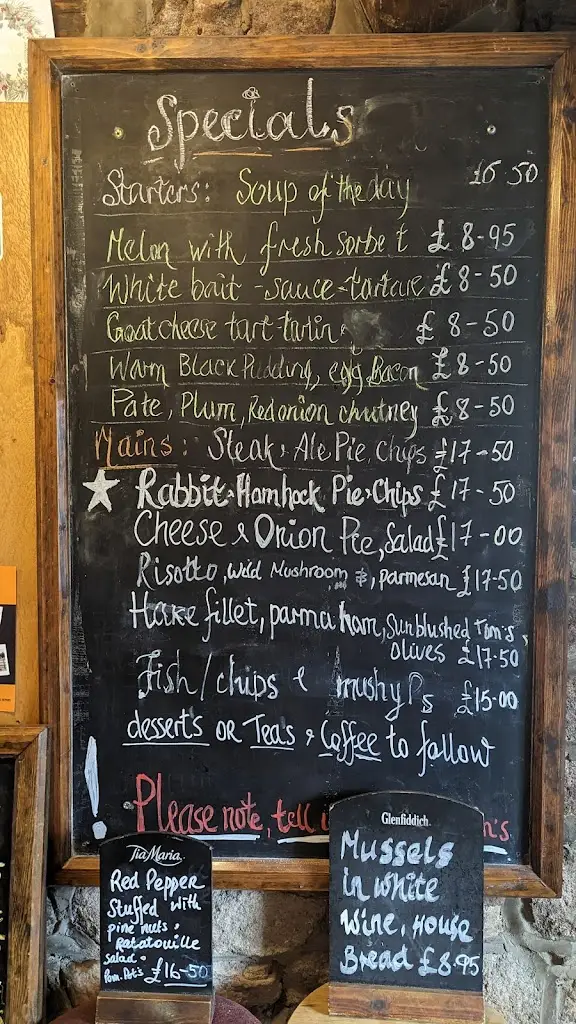 Specials
Starters: Soup of the day £6 50
Melon with fresh sorbet £8-95
White bait -sauce-tartare £8-50
Goat cheese tart-tatin £8-50
Warm Black Pudding, egg, Bacon £8-50
Pate, Plum, Red onion chutney £8-50
Mains: Steak, Ale Pie, Chips £17-50
Rabbit, Hamhock Pie, Chips £17-50
Cheese & Onion Pie, Salad £17-00
Risotto, Wild Mushroom &, parmesan £17-50
Hake fillet, parma ham, Sunblushed Tom's,
olives £17-50
Fish/chips & mushy Ps £15-00
desserts OR Teas & Coffee to follow
! Please note, tell
Tia Maria.
Red Pepper
Stuffed with
pine nuts,
Ratatouille
salad.
Pom. Pot's £16-50
Glenfiddich.
Mussels
in white
Wine, House
Bread £8.95